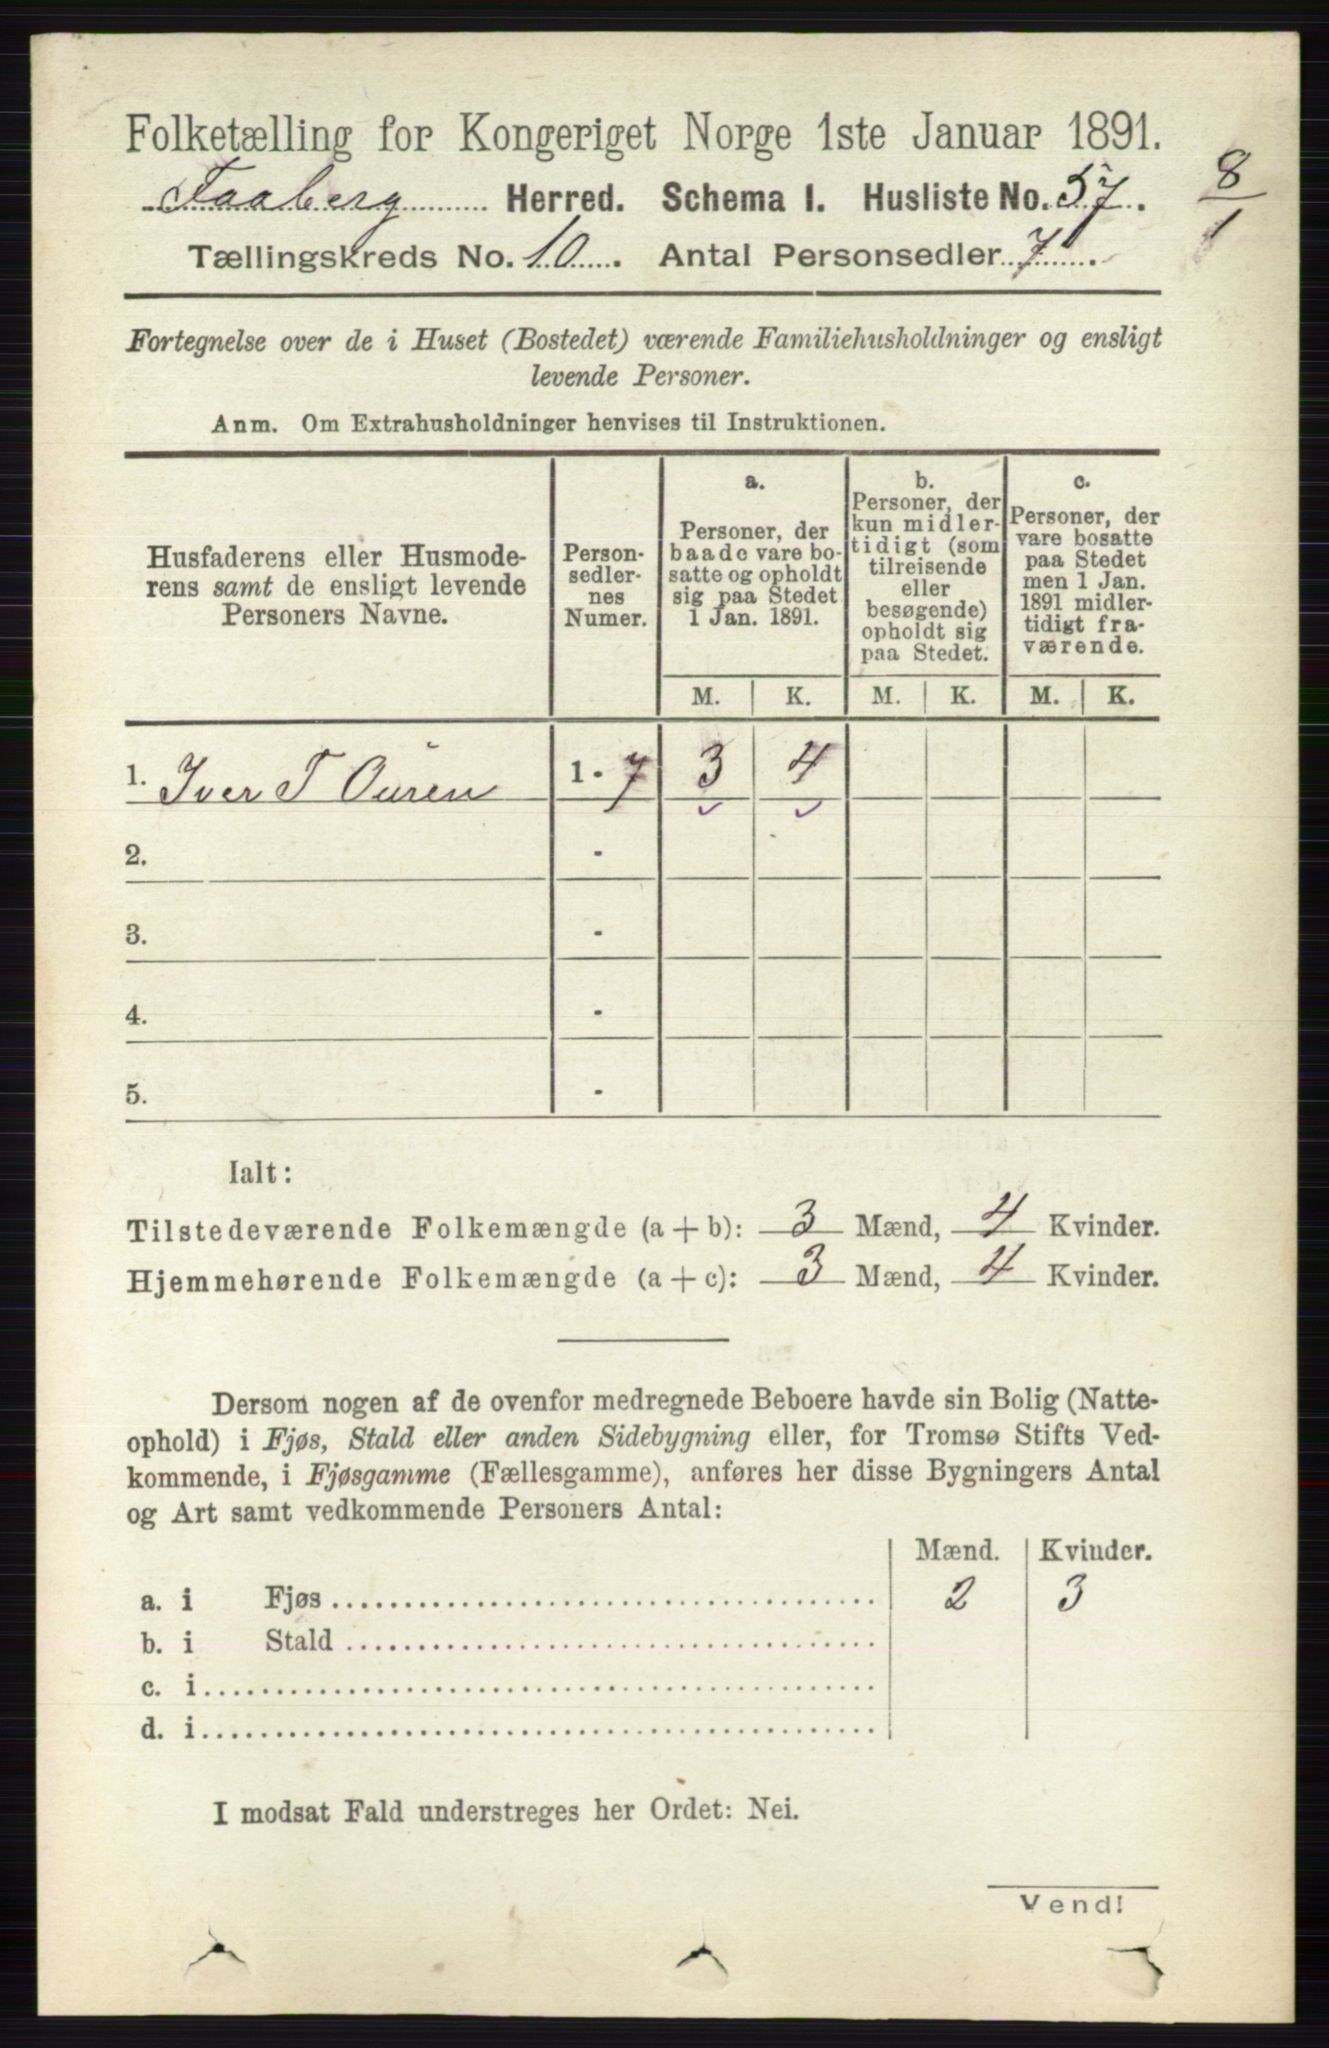 Folketælling for Kongeriget Norge 1ste Januar 1891.
Faaberg Herred. Schema I. Husliste No. 57.
8
1
Tællingskreds No. 10. Antal Personsedler 7.
Fortegnelse over de i Huset (Bostedet) værende Familiehusholdninger og ensligt
levende Personer.
Anm. Om Extrahusholdninger henvises til Instruktionen.
Husfaderens eller Husmode-
rens samt de ensligt levende
Personers Navne.
Person-
sedler-
nes
Numer.
a.
Personer, der
baade vare bo-
satte og opholdt
sig paa Stedet
1 Jan. 1891.
b.
Personer, der
kun midler-
tidigt (som
tilreisende
eller
besøgende)
opholdt sig
paa Stedet.
c.
Personer, der
vare bosatte
paa Stedet
men 1 Jan.
1891 midler-
tidigt fra-
værende.
M. K. M. K. M. K.
1. Iver T Ouren 1 - 7 3 4
2. -
3. -
4. -
5. -
Ialt:
Tilstedeværende Folkemængde (a + b): 3 Mænd, 4 Kvinder.
Hjemmehørende Folkemængde (a + c): 3 Mænd, 4 Kvinder.
Dersom nogen af de ovenfor medregnede Beboere havde sin Bolig (Natte-
ophold) i Fjøs, Stald eller anden Sidebygning eller, for Tromsø Stifts Ved-
kommende, i Fjøsgamme (Fællesgamme), anføres her disse Bygningers Antal
og Art samt vedkommende Personers Antal:
Mænd. Kvinder.
a. i Fjøs 2 3
b. i Stald
c. i
d. i
I modsat Fald understreges her Ordet: Nei.
Vend!